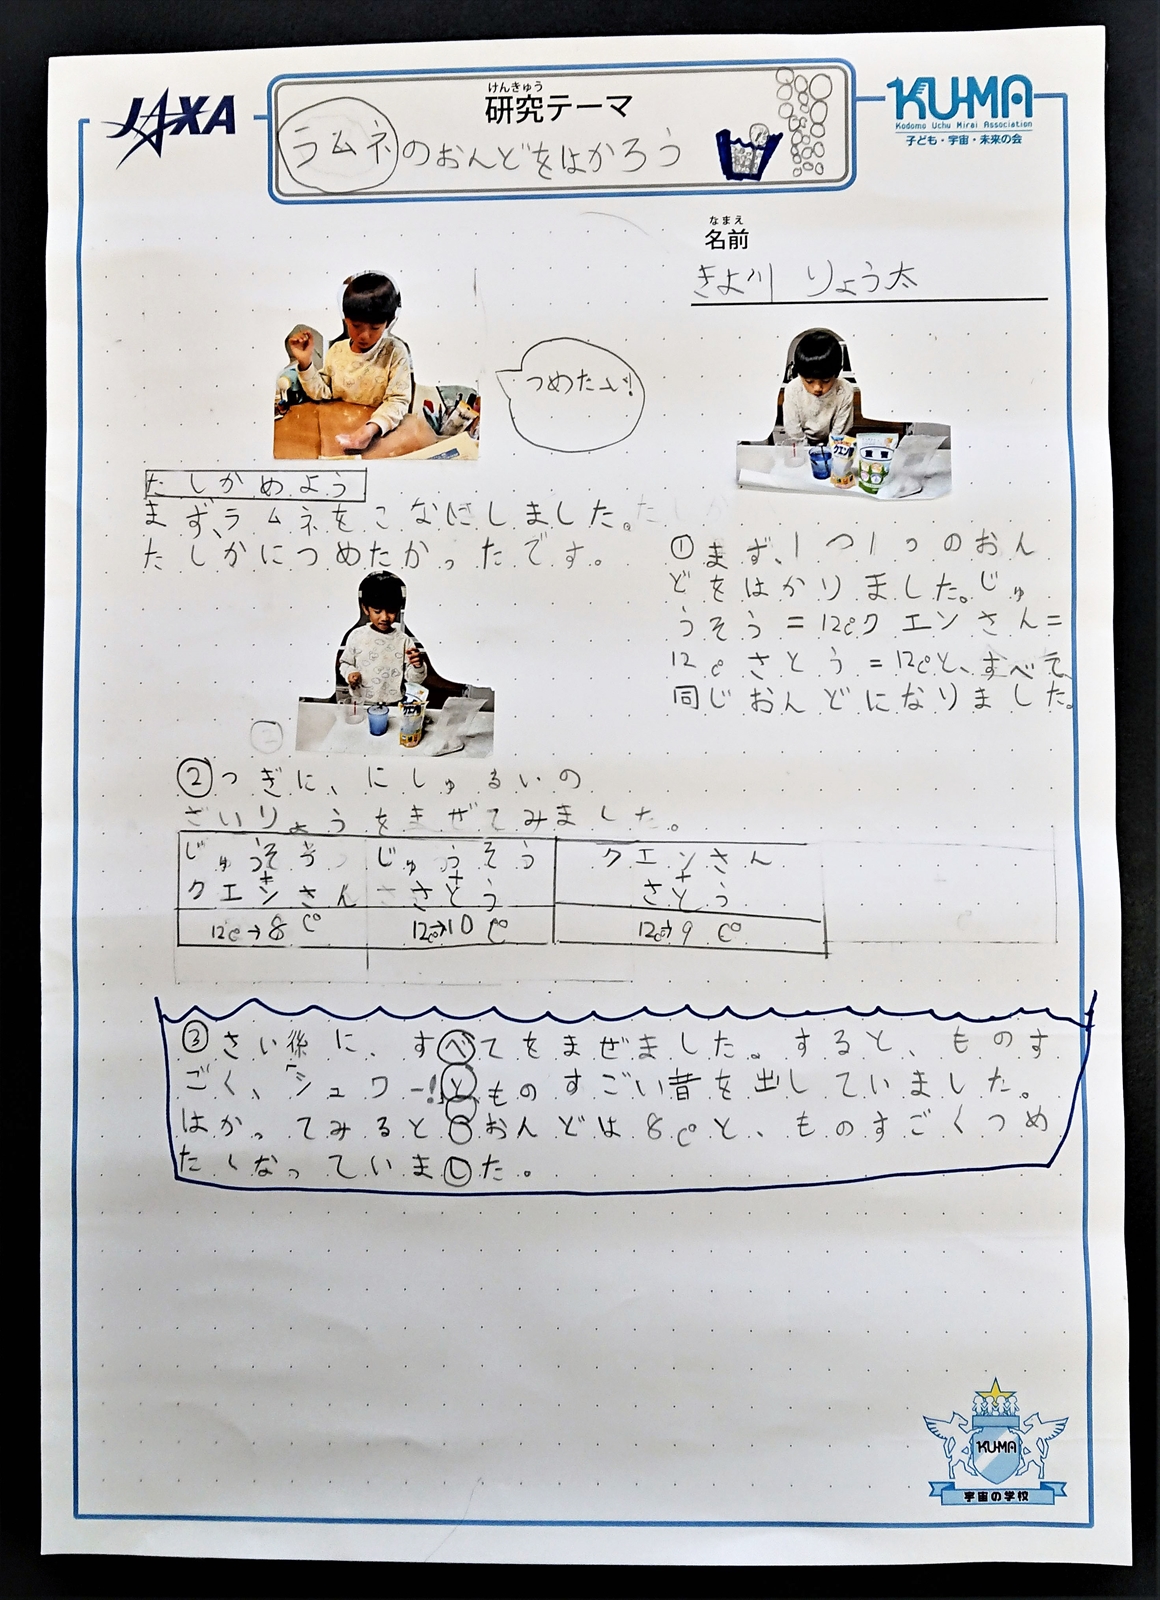 JAXA
けんきゅう
研究テーマ
ラムネのおんどをはかろう
KU-MA
Kodomo Uchu Mirai Association
子ども・宇宙・未来の会
なまえ
名前
きよ川 りょう太
つめたい!
クエン酸
重曹
たしかめよう
まず、ラムネをこなにしました。
たしかにつめたかったです。
①まず、1つ1つのおん
どをはかりました。じゅ
うそう=12℃クエンさん=
12℃さとう=12℃と、すべて
同じおんどになりました。
②つぎに、にしゅるいの
ざいりょうをまぜてみました。
じゅうそう じゅうそう クエンさん
+ + +
クエンさん さとう さとう
12℃→8℃ 12℃→10℃ 12℃→9℃
③さい後に、すべてをまぜました。すると、ものす
ごく、「シュワー!」とものすごい音を出していました。
はかってみるとおんどは8℃と、ものすごくつめ
たくなっていました。
KU-MA
宇宙の学校